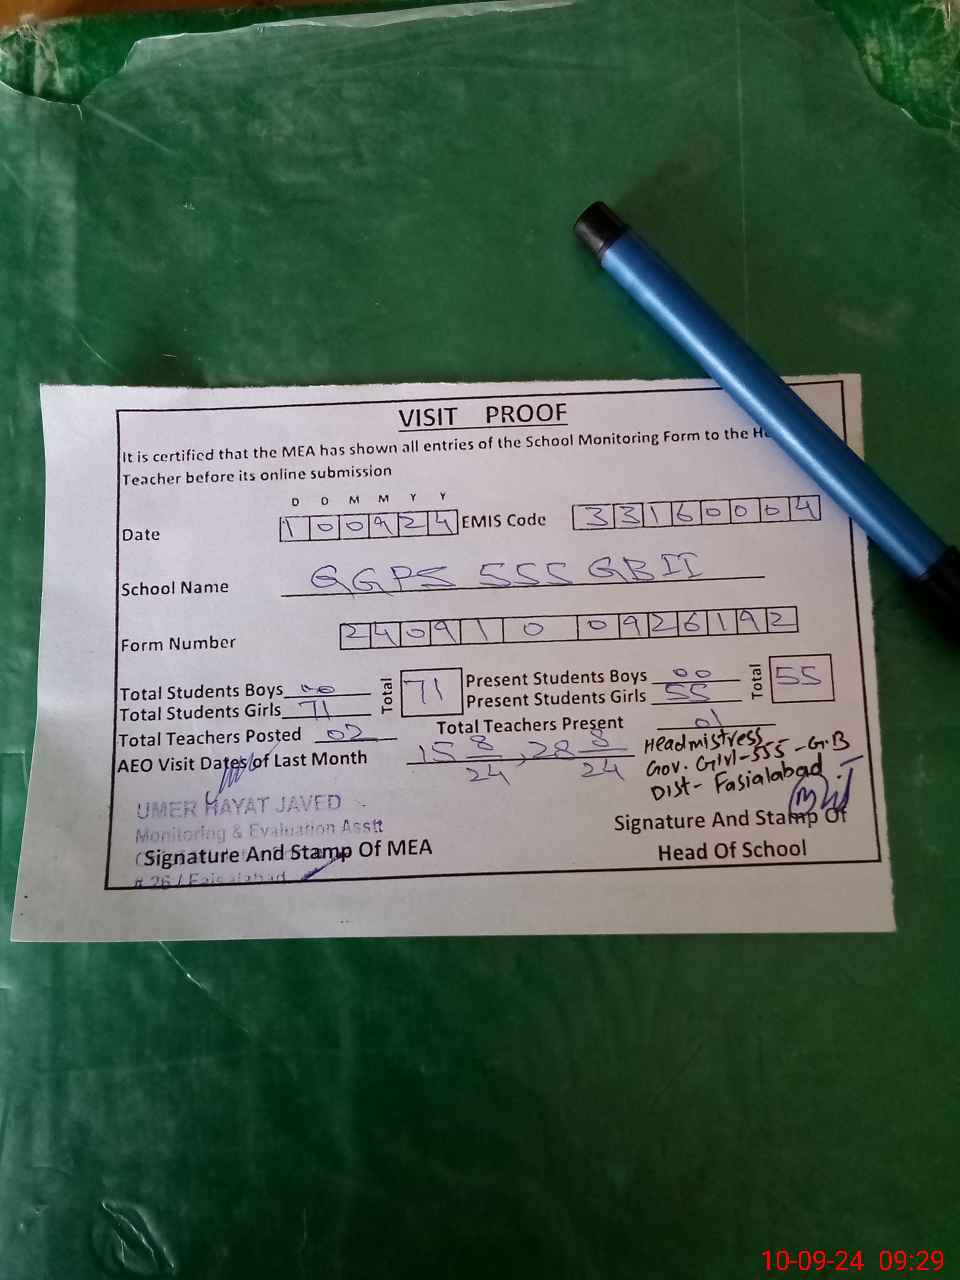 VISIT PROOF
It is certified that the MEA has shown all entries of the School Monitoring Form to the
Teacher before its online submission
D D M M Y Y
Date 100924 EMIS Code 33160004
School Name GGPS 555 GB II
Form Number 2409100926192
Total Students Boys 00 Total 71 Present Students Boys 00 Total 55
Total Students Girls 71 Present Students Girls 55
Total Teachers Posted 02 Total Teachers Present 01
AEO Visit Dates of Last Month 15 8/24, 28 8/24
Headmistress
Gov. G -555 -G.B
Dist- Fasialabad
UMER HAYAT JAVED
Monitoring & Evaluation Asstt
Signature And Stamp Of MEA
# 26 / Faisalabad
Signature And Stamp Of
Head Of School
10-09-24 09:29